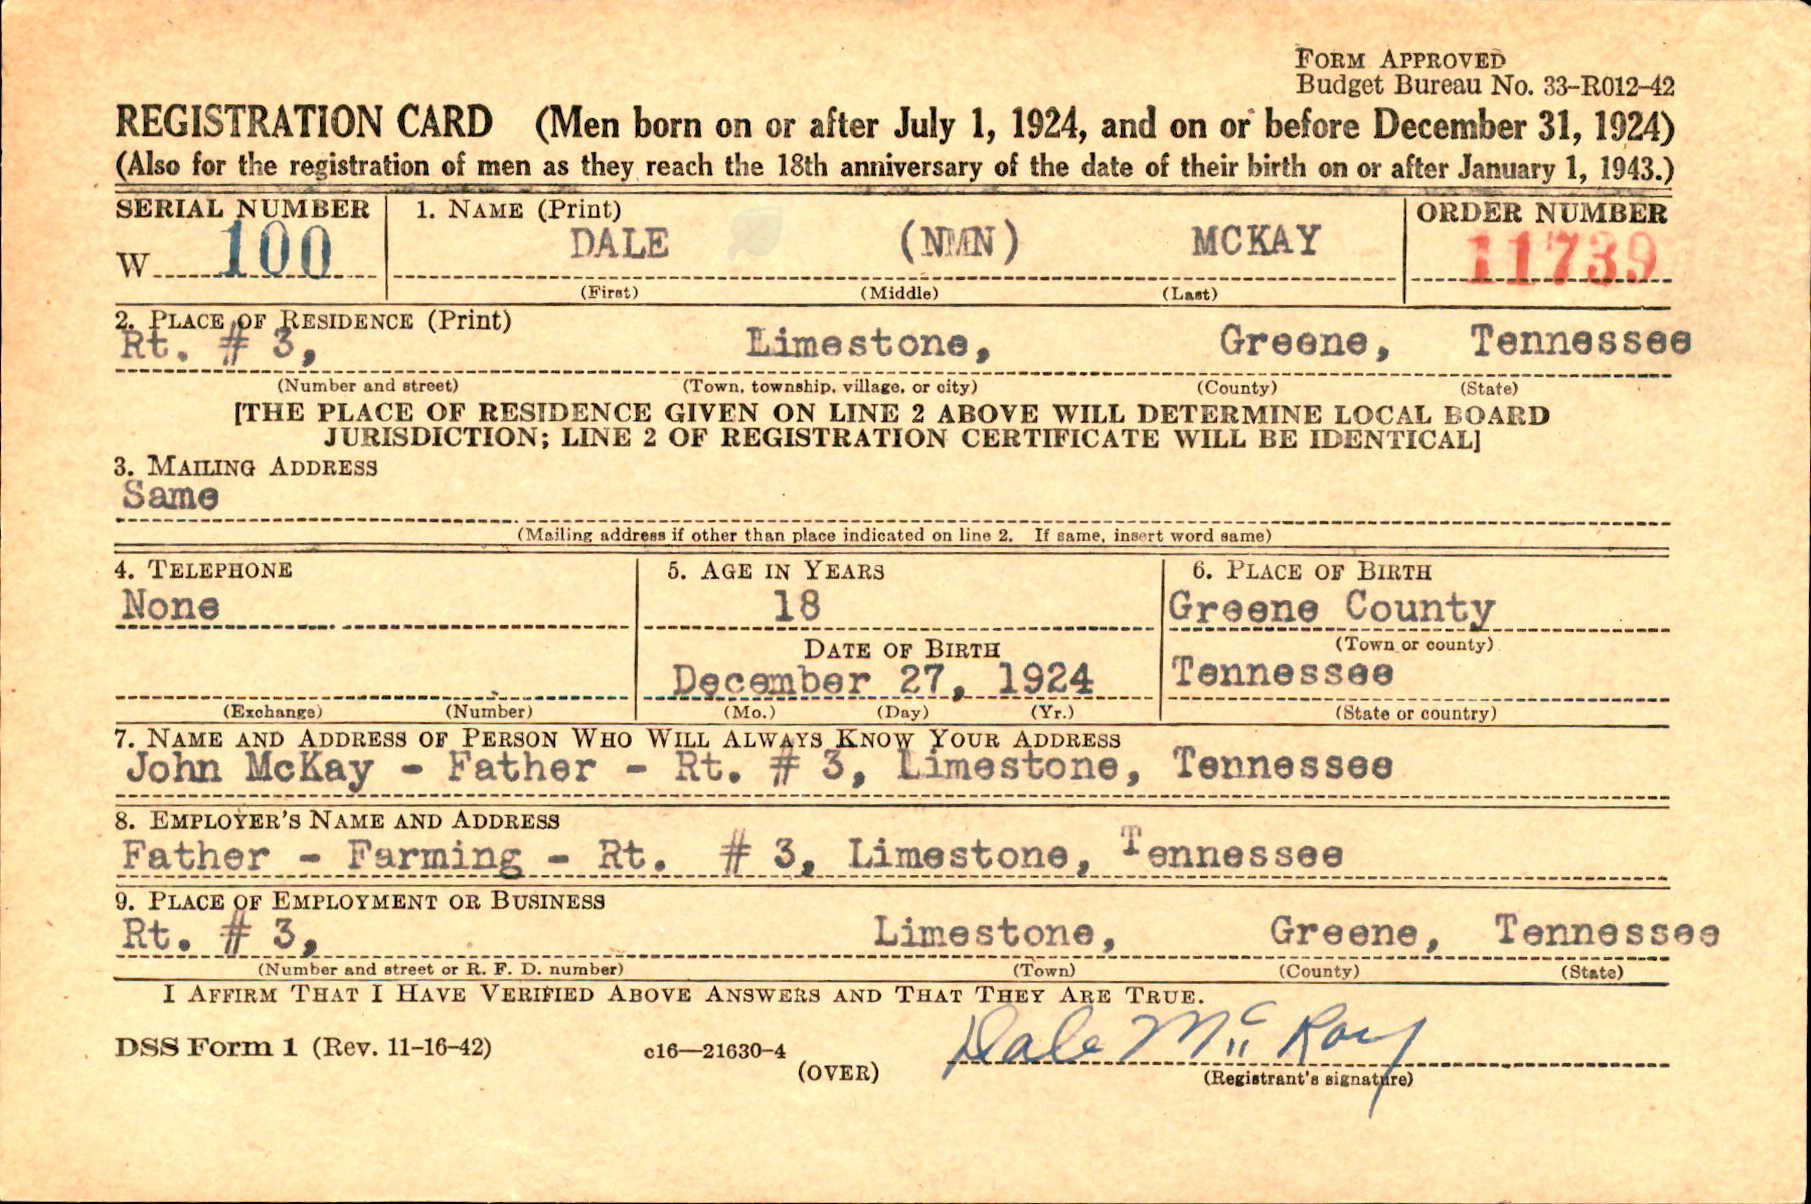 FORM APPROVED
Budget Bureau No. 33-R012-42
REGISTRATION CARD (Men born on or after July 1, 1924, and on or before December 31, 1924)
(Also for the registration of men as they reach the 18th anniversary of the date of their birth on or after January 1, 1943.)
SERIAL NUMBER 1. NAME (Print) ORDER NUMBER
W 100 DALE (NMN) MCKAY 11739
(First) (Middle) (Last)
2. PLACE OF RESIDENCE (Print)
Rt. # 3, Limestone, Greene, Tennessee
(Number and street) (Town, township, village, or city) (County) (State)
[THE PLACE OF RESIDENCE GIVEN ON LINE 2 ABOVE WILL DETERMINE LOCAL BOARD
JURISDICTION; LINE 2 OF REGISTRATION CERTIFICATE WILL BE IDENTICAL]
3. MAILING ADDRESS
Same
(Mailing address if other than place indicated on line 2. If same, insert word same)
4. TELEPHONE 5. AGE IN YEARS 6. PLACE OF BIRTH
None 18 Greene County
DATE OF BIRTH (Town or county)
December 27, 1924 Tennessee
(Exchange) (Number) (Mo.) (Day) (Yr.) (State or country)
7. NAME AND ADDRESS OF PERSON WHO WILL ALWAYS KNOW YOUR ADDRESS
John McKay - Father - Rt. # 3, Limestone, Tennessee
8. EMPLOYER'S NAME AND ADDRESS
Father - Farming - Rt. # 3, Limestone, Tennessee
9. PLACE OF EMPLOYMENT OR BUSINESS
Rt. # 3, Limestone, Greene, Tennessee
(Number and street or R. F. D. number) (Town) (County) (State)
I AFFIRM THAT I HAVE VERIFIED ABOVE ANSWERS AND THAT THEY ARE TRUE.
DSS Form 1 (Rev. 11-16-42) c16—21630-4 Dale McKay
(OVER) (Registrant's signature)